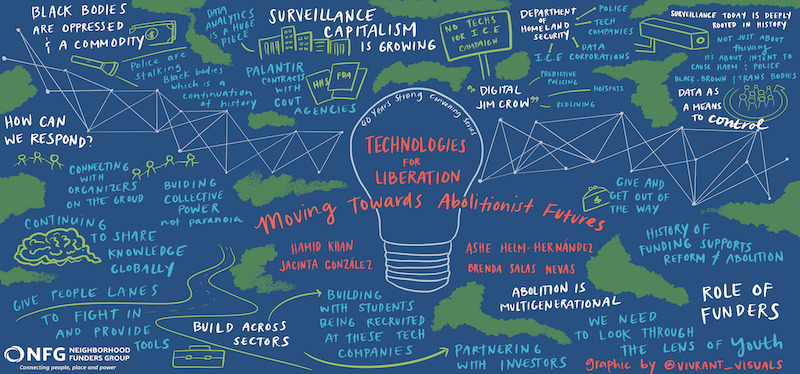 BLACK BODIES
ARE OPPRESSED
& A COMMODITY
Police are
stalking
Black bodies
which is a
continuation
of history
DATA
ANALYTICS
IS A HUGE
PIECE
SURVEILLANCE
CAPITALISM
IS GROWING
PALANTIR
CONTRACTS
WITH
GOVT
AGENCIES
HHS
FDA
NO TECHS
FOR I.C.E
CAMPAIGN
DEPARTMENT
OF
HOMELAND
SECURITY
POLICE
TECH
COMPANIES
I.C.E
DATA
CORPORATIONS
"DIGITAL
JIM CROW"
PREDICTIVE
POLICING
HOTSPOTS
REDLINING
SURVEILLANCE TODAY IS DEEPLY
ROOTED IN HISTORY
NOT JUST ABOUT
Privacy
ITS ABOUT INTENT TO
CAUSE HARM & POLICE
BLACK, BROWN & TRANS BODIES
DATA AS
A MEANS
TO control
40 Years Strong Convening Series
TECHNOLOGIES
FOR
LIBERATION
Moving Towards Abolitionist Futures
HAMID KHAN
JACINTA GONZÁLEZ
ASHE HELM-HERNÁNDEZ
BRENDA SALAS NEVAS
HOW CAN
WE RESPOND?
CONNECTING
WITH
ORGANIZERS
ON THE GROUD
BUIDING
COLLECTIVE
POWER
not paranoia
CONTINUING
TO SHARE
KNOWLEDGE
GLOBALLY
GIVE PEOPLE LANES
TO FIGHT IN
AND PROVIDE
TOOLS
BUILD ACROSS
SECTORS
BUILDING
WITH STUDENTS
BEING RECRUITED
AT THESE TECH
COMPANIES
PARTNERING
WITH INVESTORS
ABOLITION IS
MULTIGENERATIONAL
GIVE AND
GET OUT OF
THE WAY
HISTORY OF
FUNDING SUPPORTS
REFORM ≠ ABOLITION
ROLE OF
FUNDERS
WE NEED
TO LOOK THROUGH
THE LENS OF Youth
graphic by @VIVRANT_VISUALS
NFG NEIGHBORHOOD
FUNDERS GROUP
Connecting people, place and power